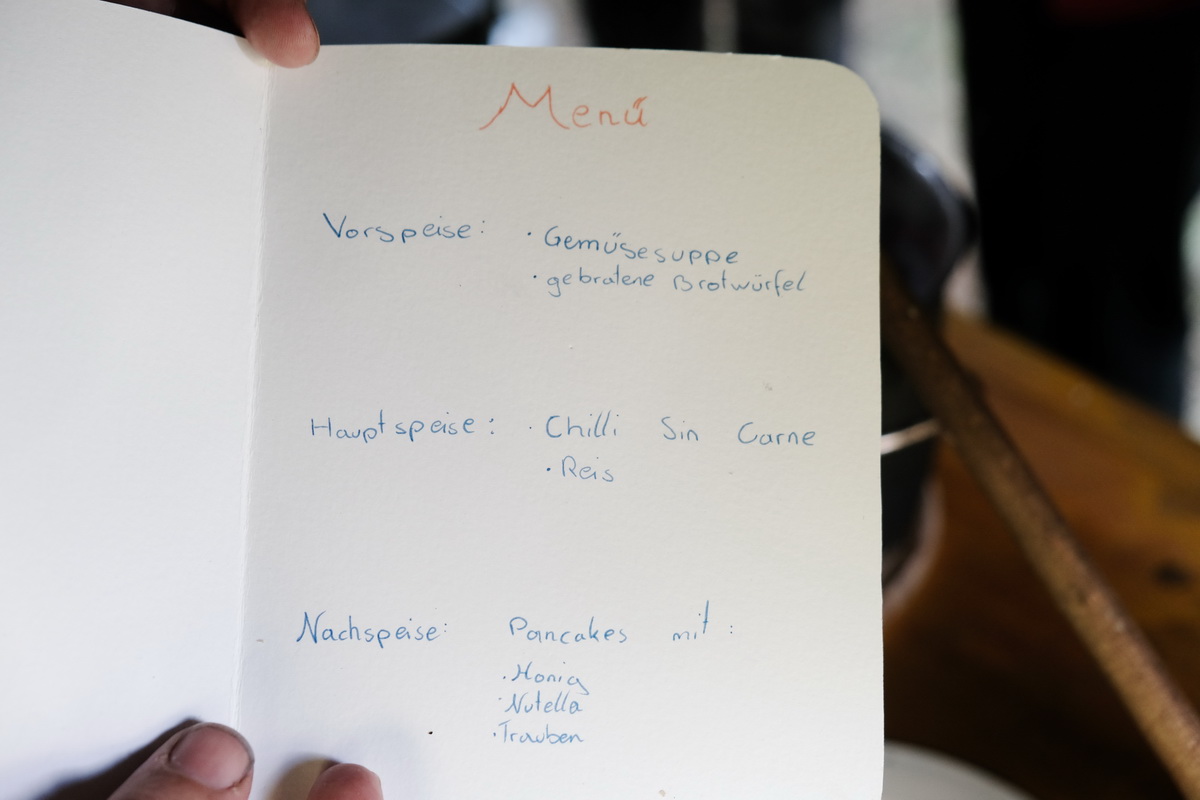 Menü
Vorspeise: · Gemüsesuppe
· gebratene Brotwürfel
Hauptspeise: · Chilli Sin Carne
· Reis
Nachspeise: Pancakes mit:
· Honig
· Nutella
· Trauben